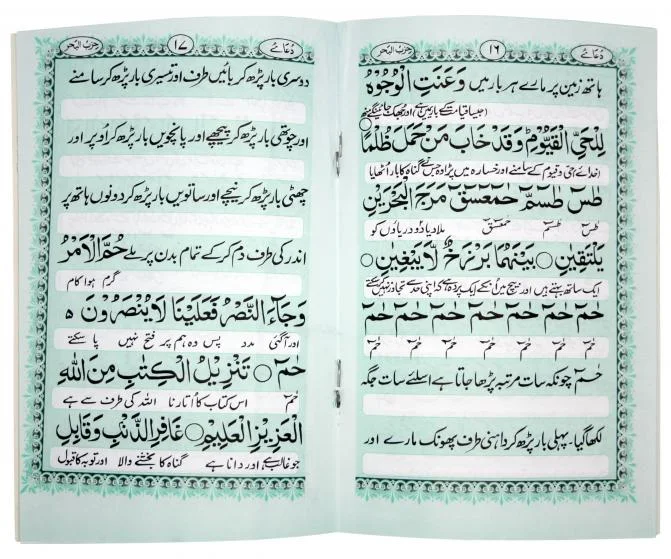 دُعائے ۱۶ حزب البحر
ہاتھ زمین پر مارے ہر بار میں وَعَنَتِ الْوُجُوْهُ
(جیسا قیامت کے بارے میں ہے) اور جھک جائینگے منہ
لِلْحَيِّ الْقَيُّوْمِ وَقَدْ خَابَ مَنْ حَمَلَ ظُلْمًا
(خدائے) حی و قیوم کے سامنے اور خسارہ میں پڑا وہ جس نے گناہ کا بار اُٹھایا
طٰسٓ طٰسٓمّٓ حٰمٓعٓسٓقٓ مَرَجَ الْبَحْرَيْنِ
طٰسٓ طٰسٓمّٓ حٰمٓعٓسٓقٓ ملا دیا دو دریاؤں کو
يَلْتَقِيٰنِ ○ بَيْنَهُمَا بَرْزَخٌ لَّا يَبْغِيٰنِ ○
ایک ساتھ بہتے ہیں اور بیچ میں انکے ایک پردہ ہے کہ اپنی حد سے تجاوز نہیں کر سکتے
حٰمٓ حٰمٓ حٰمٓ حٰمٓ حٰمٓ حٰمٓ حٰمٓ
حٰمٓ حٰمٓ حٰمٓ حٰمٓ حٰمٓ حٰمٓ حٰمٓ
حٰمٓ چونکہ سات مرتبہ پڑھا جاتا ہے اسلئے سات جگہ
لکھا گیا۔ پہلی بار پڑھ کر داہنی طرف پھونک مارے اور
دُعائے ۱۷ حزب البحر
دوسری بار پڑھ کر بائیں طرف اور تیسری بار پڑھ کر سامنے
اور چوتھی بار پڑھ کر پیچھے اور پانچویں بار پڑھ کر اوپر اور
چھٹی بار پڑھ کر نیچے اور ساتویں بار پڑھ کر دونوں ہاتھ پر
اندر کی طرف دم کر کے تمام بدن پر ملے حُمَّ الْاَمْرُ
گرم ہوا کام
وَجَآءَ النَّصْرُ فَعَلَيْنَا لَا يُنْصَرُوْنَ ه
اور آگئی مدد پس وہ ہم پر فتح نہیں پا سکتے
حٰمٓ ○ تَنْزِيْلُ الْكِتٰبِ مِنَ اللّٰهِ
حٰمٓ اس کتاب کا اُتارنا اللہ کی طرف سے ہے
الْعَزِيْزِ الْعَلِيْمِ ○ غَافِرِ الذَّنْبِ وَقَابِلِ
جو غالب ہے، اور دانا ہے گناہ کا بخشنے والا اور توبہ کا قبول